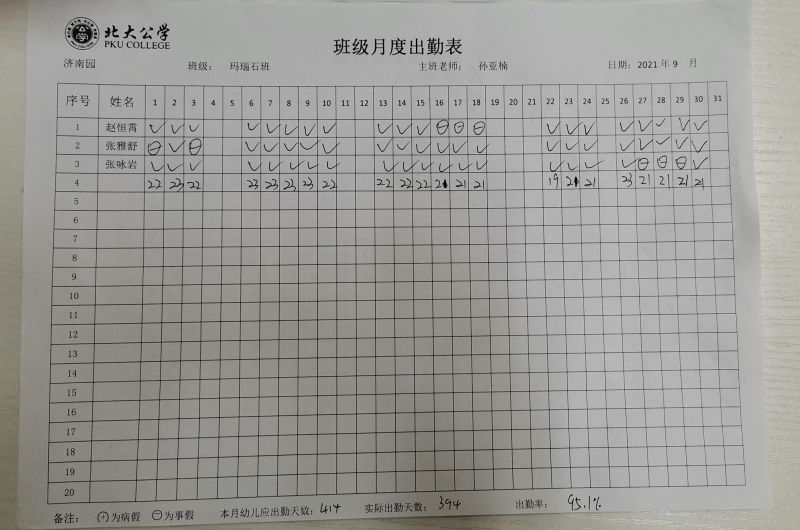 北大公学
PKU COLLEGE
班级月度出勤表
济南园 班级： 玛瑙石班 主班老师： 孙亚楠 日期：2021 年 9 月
序号 姓名 1 2 3 4 5 6 7 8 9 10 11 12 13 14 15 16 17 18 19 20 21 22 23 24 25 26 27 28 29 30 31
1 赵恒霄 ✓ ✓ ✓ ✓ ✓ ✓ ✓ ✓ ✓ ✓ ✓ ⊖ ⊖ ⊖ ✓ ✓ ✓ ✓ ✓ ✓ ✓ ✓
2 张雅舒 ⊖ ✓ ⊖ ✓ ✓ ✓ ✓ ✓ ✓ ✓ ✓ ✓ ✓ ✓ ✓ ✓ ✓ ✓ ✓ ✓ ✓ ✓
3 张咏岩 ✓ ✓ ✓ ✓ ✓ ✓ ✓ ✓ ✓ ✓ ✓ ✓ ✓ ✓ ✓ ✓ ✓ ✓ ⊖ ⊖ ⊖ ✓
4 22 23 22 23 23 23 23 22 22 22 22 21 21 21 19 21 21 23 21 21 21 21
5
6
7
8
9
10
11
12
13
14
15
16
17
18
19
20
备注： ⊕为病假 ⊖为事假 本月幼儿应出勤天数：414 实际出勤天数：394 出勤率： 95.1%